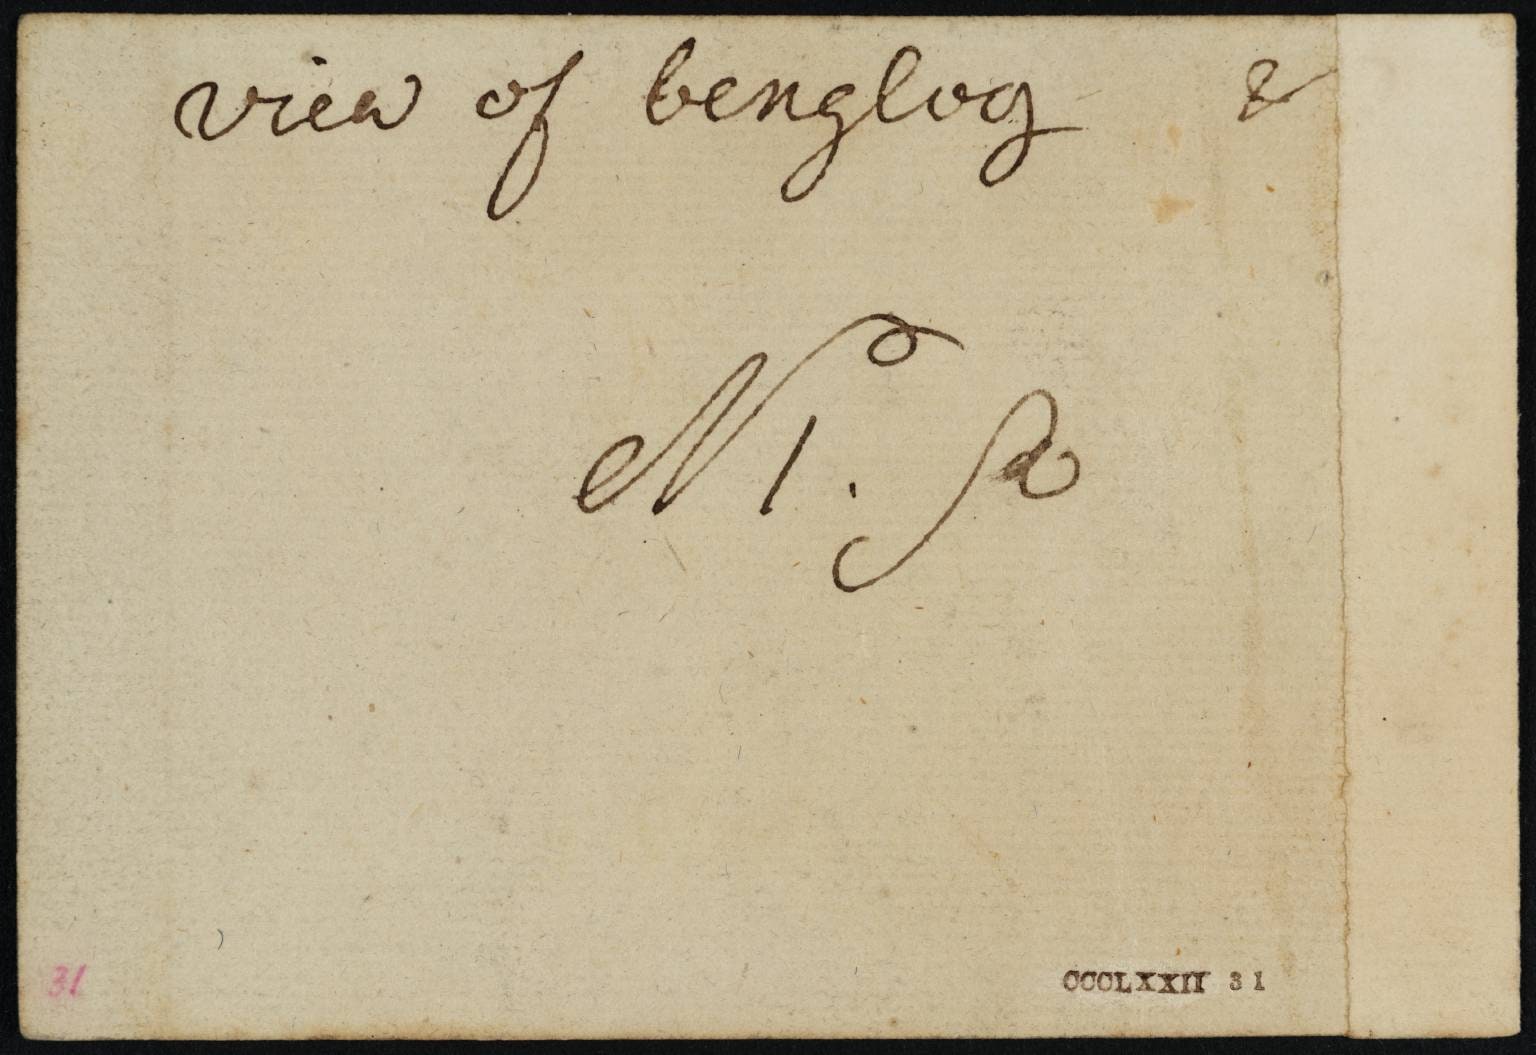 view of benglog &
N 1.
31
CCCLXXII 31